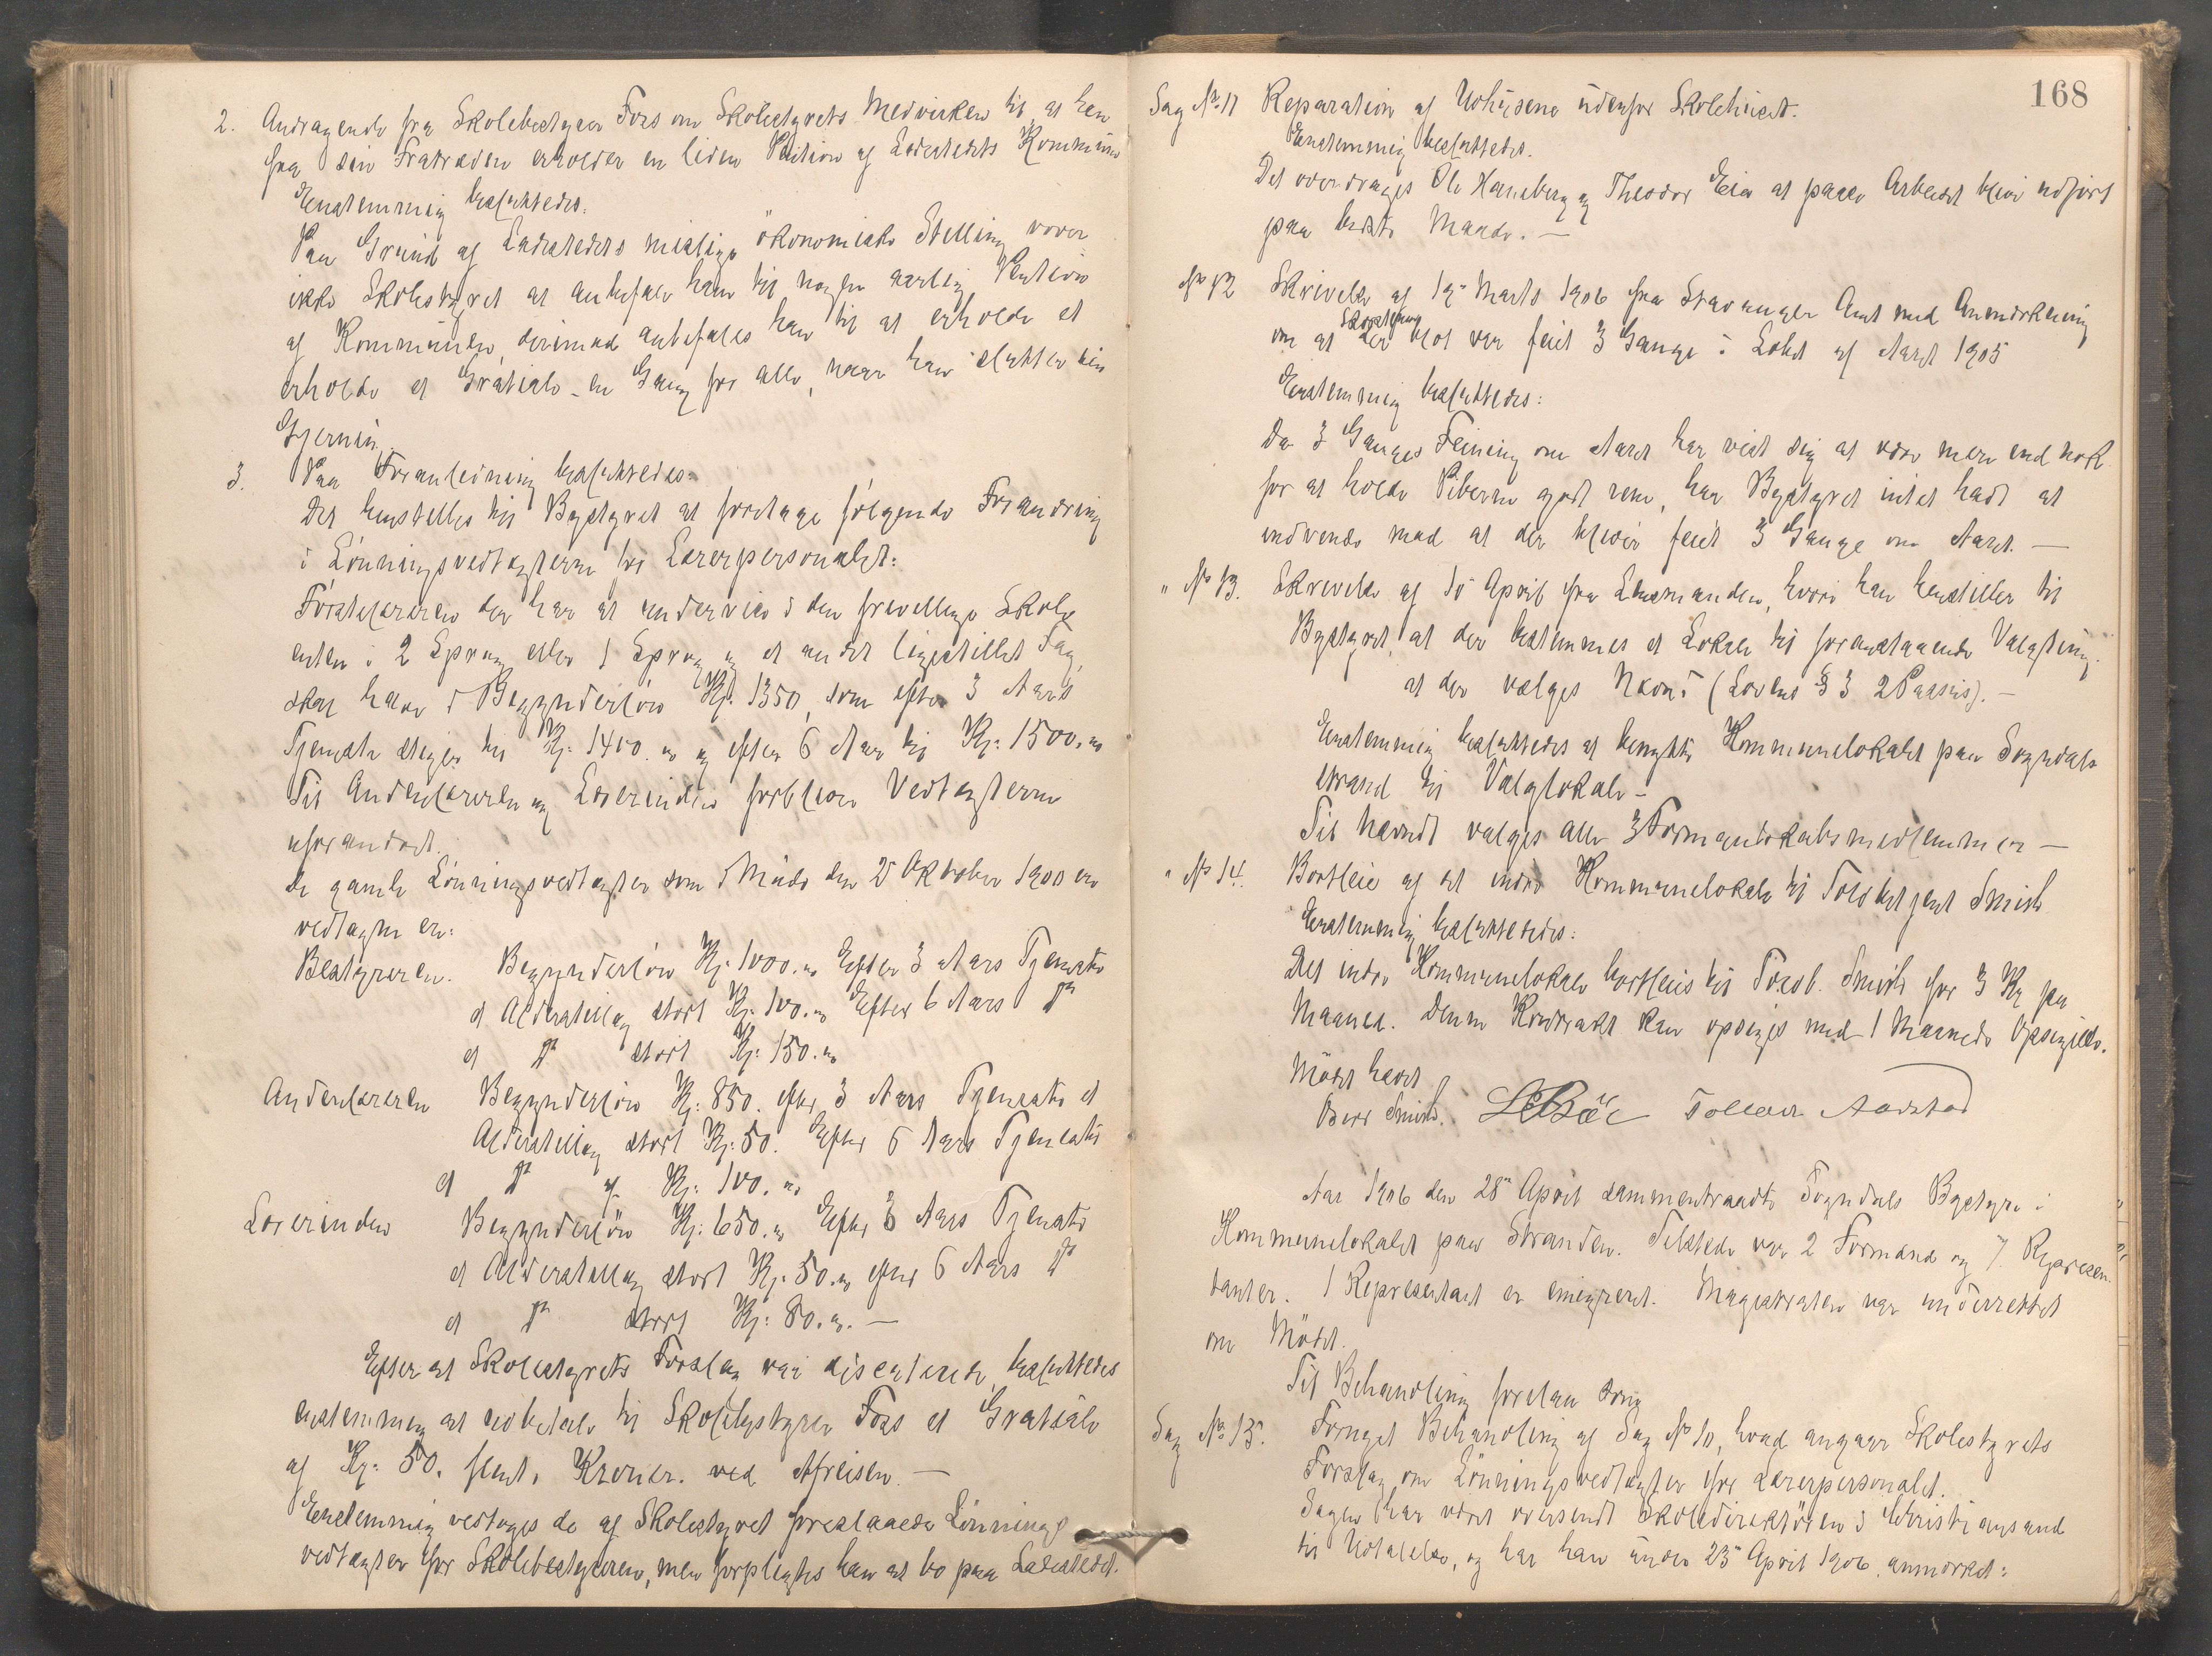 2. Andragende fra Skolebestyrer Foss om Skolestyrets Medvirken til, at han
fra sin Fratræden erholder en liden Pention af Ladestedets Kommune
Enstemmig besluttedes:
Paa Grund af Ladestedets mislige ökonomiske Stilling vover
ikke Skolestyret at anbefale ham til nogen aarlig Pention
af Kommunen, derimod anbefales han til at erholde et
erholde et Gratiale en Gang for alle, naar han slutter sin
Gjerning.
3. Paa Foranledning besluttedes:
Det henstilles til Bystyret at foretage følgende Forandring
i Lönningsvedtægterne for Lærerpersonalet:
Förstelæreren der har at undervise i den frivillige Skole
enten i 2 Sprog eller 1 Sprog og et andet ligestillet Fag,
skal have i Begynderlön Kr. 1350, som efter 3 Aars
Tjeneste stiger til Kr. 1400.00 og efter 6 Aar til Kr. 1500.00
For Andenlæreren og Lærerinden forbliver Vedtægterne
uforandret.
De gamle Lönningsvedtægter som i Möde den 25 Oktober 1900 er
vedtagne er:
Bestyreren. Begynderlön Kr. 1000.00 Efter 3 Aars Tjeneste
et Alderstillæg stort Kr. 100.00 Efter 6 Aars do
et do stort Kr. 150.00
Andenlæreren Begynderlön Kr. 850. efter 3 Aars Tjeneste et
Alderstillæg stort Kr. 50. Efter 6 Aars Tjeneste
et do af Kr. 100.00
Lærerinden Begynderlön Kr. 650.00 Efter 3 Aars Tjeneste
et Alderstillæg stort Kr. 50.00 efter 6 Aars do
et do stort Kr. 80.00. —
Efter at Skolestyrets Forslag var discuterede, besluttedes
enstemmig at udbetale til Skolebestyrer Foss et Gratiale
af Kr. 50. femti Kroner. ved Afreisen. —
Enstemmig vedtoges de af Skolestyret foreslaaede Lönnings
vedtægter for Skolebestyreren, men forpligtes han at bo paa Ladestedet.
168
Sag No 11 Reparation af Udhusene udenfor Skolehuset.
Enstemmig besluttedes.
Det overdrages Ole Haneberg og Theodor Eia at paase Arbeidet blive udfört
paa bedste Maade. —
No 12 Skrivelse af 19 Marts 1906 fra Stavanger Amt med Anmerkning
om at der blot var feiet 3 Gange i Löbet af Aaret 1905
Enstemmig besluttedes:
Da 3 Ganges Feining om Aaret har vist sig at være mere end nok
for at holde Piberne godt rene, har Bystyret intet havt at
indvende mod at der bliver feiet 3 Gange om Aaret. —
" No 13. Skrivelse af 10 April fra Lensmanden, hvori han henstiller til
Bystyret, at der bestemmes et Lokale til forestaaende Valgting.
at der vælges Nævnd (Lovens § 3 2 Passus). —
Enstemmig besluttedes at benytte Kommunelokalet paa Sogndals
strand til Valglokale —
Til Nævnd valges alle 3 Formandskabsmedlemmer —
" No 14. Bortleie af det indre Kommunelokale til Toldbetjent Smith
Enstemmig besluttedes:
Det indre Kommunelokale bortleies til Toldb. Smith for 3 Kr. pr
Maaned. Denne Kontrakt kan opsiges med 1 Maaneds Opsigelse.
Mödet hævet
Smith. Tollak Aarstad
Aar 1906 den 28 April sammentraadte Sogndals Bystyre i
Kommunelokalet paa Stranden. Tilstede var 2 Formænd og 7 Represen-
tanter. 1 Representant er emigreret. Magistraten var underrettet
om Mödet.
Til Behandling forelaa
Sag No 15. Fornyet Behandling af Sag No 10, hvad angaar Skolestyrets
Forslag om Lönningsvedtægter for Lærerpersonalet.
Sagen har været oversendt Skoledirektören i Christiansand
til Udtalelse, og har han under 25 April 1906 anmerket: